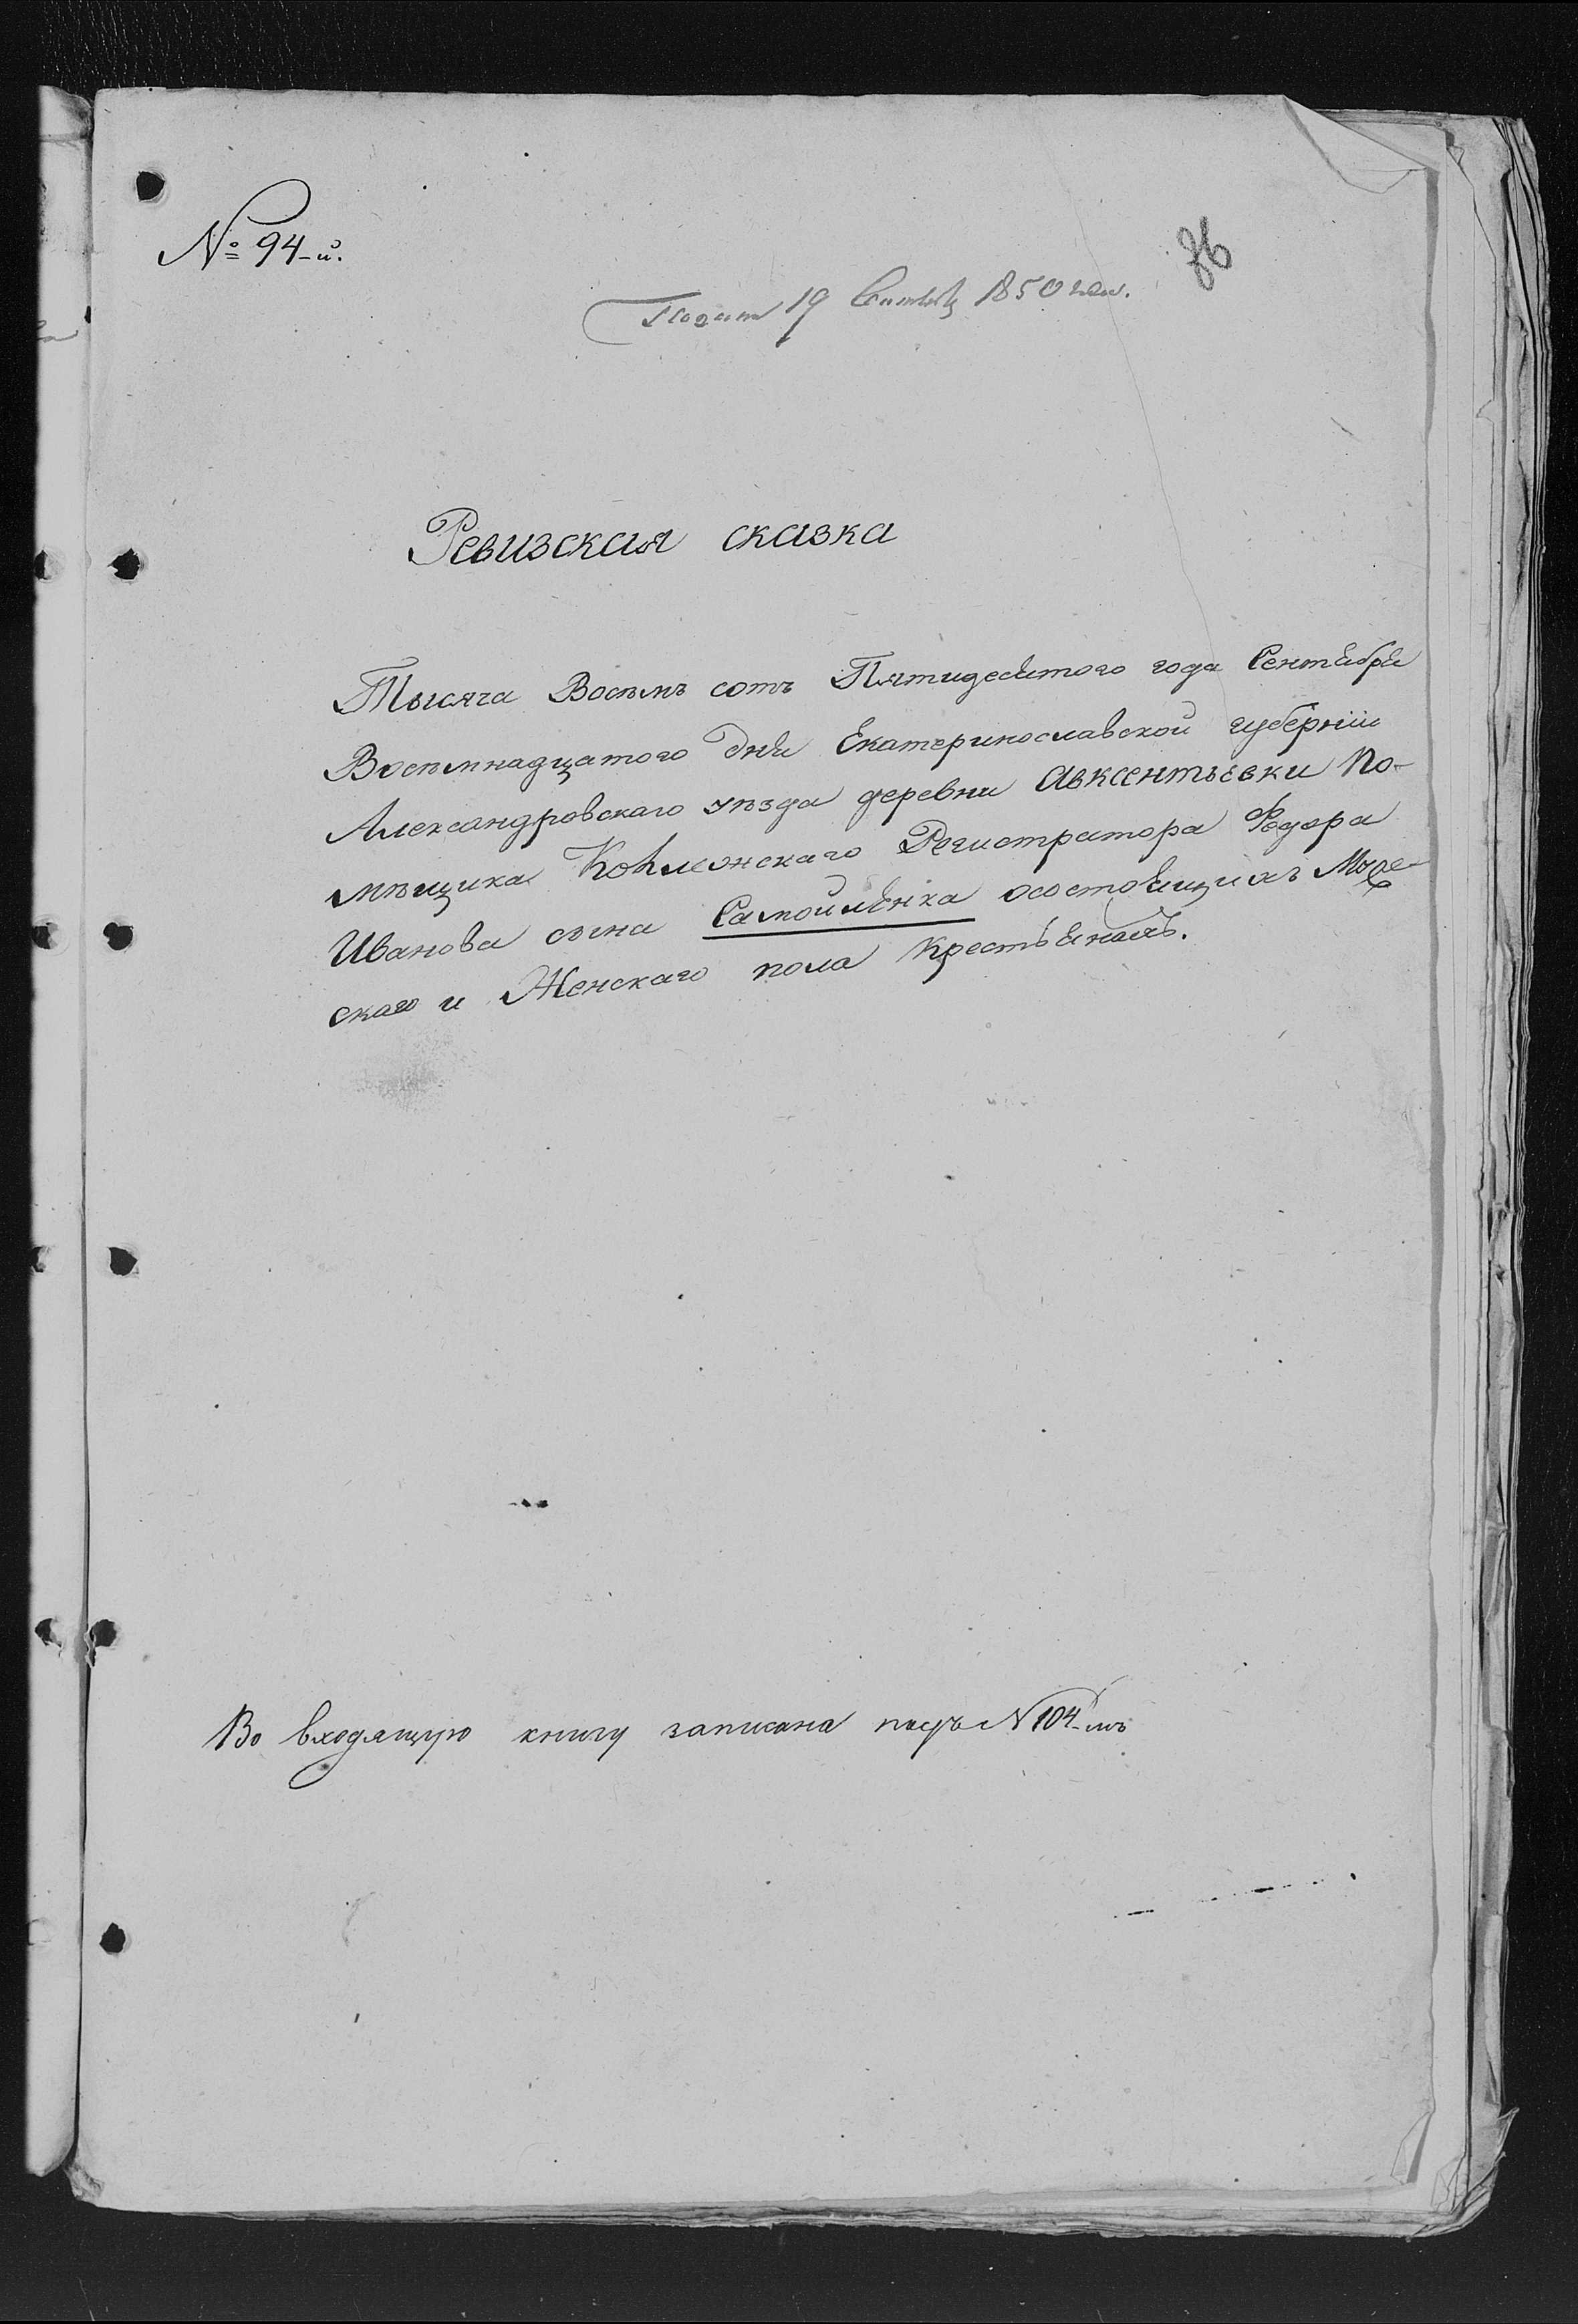 № 94-й.
36
19 1850 года.
Ревизская сказка
Тысяча Восемъ сотъ Пятидесятого года Сентября
Восемнадцатого дня Екатеринославской губерніи
Александровскаго уѣзда деревни Авксентьевки По-
мѣщика Регистратора Федора
Иванова сына Самойленка осостоящихъ Муже-
скаго и Женскаго пола Крестьянахъ.
Во входящую книгу записана подъ № 104-мъ